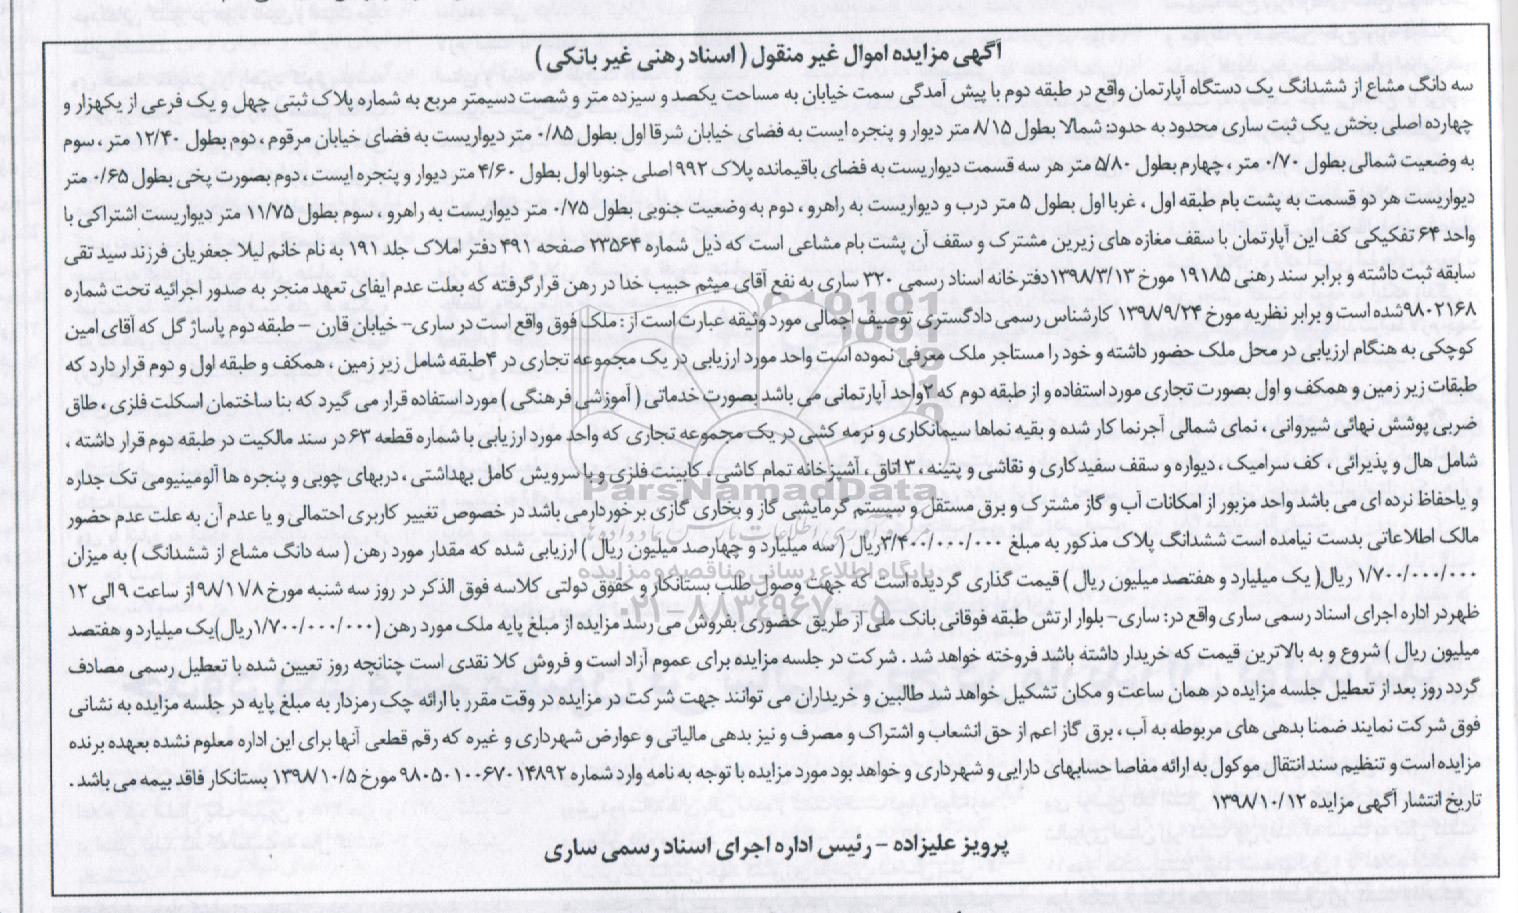 آگهی مزایده اموال غیر منقول ( اسناد رهنی غیر بانکی )
سه دانگ مشاع از ششدانگ یک دستگاه آپارتمان واقع در طبقه دوم با پیش آمدگی سمت خیابان به مساحت یکصد و سیزده متر و شصت دسیمتر مربع به شماره پلاک ثبتی چهل و یک فرعی از یکهزار و
چهارده اصلی بخش یک ثبت ساری محدود به حدود: شمالا بطول ۸/۱۵ متر دیوار و پنجره ایست به فضای خیابان شرقا اول بطول ۰/۸۵ متر دیواریست به فضای خیابان مرقوم ، دوم بطول ۱۲/۴۰ متر ، سوم
به وضعیت شمالی بطول ۰/۷۰ متر ، چهارم بطول ۵/۸۰ متر هر سه قسمت دیواریست به فضای باقیمانده پلاک ۹۹۲ اصلی جنوبا اول بطول ۴/۶۰ متر دیوار و پنجره ایست ، دوم بصورت پخی بطول ۰/۶۵ متر
دیواریست هر دو قسمت به پشت بام طبقه اول ، غربا اول بطول ۵ متر درب و دیواریست به راهرو ، دوم به وضعیت جنوبی بطول ۰/۷۵ متر دیواریست به راهرو ، سوم بطول ۱۱/۷۵ متر دیواریست اشتراکی با
واحد ۶۴ تفکیکی کف این آپارتمان با سقف مغازه های زیرین مشترک و سقف آن پشت بام مشاعی است که ذیل شماره ۲۲۵۶۴ صفحه ۴۹۱ دفتر املاک جلد ۱۹۱ به نام خانم لیلا جعفریان فرزند سید تقی
سابقه ثبت داشته و برابر سند رهنی ۱۹۱۸۵ مورخ ۱۳۹۸/۳/۱۳دفترخانه اسناد رسمی ۲۲۰ ساری به نفع آقای میثم حبیب خدا در رهن قرارگرفته که بعلت عدم ایفای تعهد منجر به صدور اجرائیه تحت شماره
۹۸۰۲۱۶۸شده است و برابر نظریه مورخ ۱۳۹۸/۹/۲۴ کارشناس رسمی دادگستری توصیف اجمالی مورد وثیقه عبارت است از : ملک فوق واقع است در ساری- خیابان قارن - طبقه دوم پاساژ گل که آقای امین
کوچکی به هنگام ارزیابی در محل ملک حضور داشته و خود را مستاجر ملک معرفی نموده است واحد مورد ارزیابی در یک مجموعه تجاری در ۴طبقه شامل زیر زمین ، همکف و طبقه اول و دوم قرار دارد که
طبقات زیر زمین و همکف و اول بصورت تجاری مورد استفاده و از طبقه دوم که ۲واحد آپارتمانی می باشد بصورت خدماتی ( آموزشی فرهنگی ) مورد استفاده قرار می گیرد که بنا ساختمان اسکلت فلزی ، طاق
ضربی پوشش نهائی شیروانی ، نمای شمالی آجرنما کار شده و بقیه نماها سیمانکاری و نرمه کشی در یک مجموعه تجاری که واحد مورد ارزیابی با شماره قطعه ۶۳ در سند مالکیت در طبقه دوم قرار داشته ،
شامل هال و پذیرائی ، کف سرامیک ، دیواره و سقف سفید کاری و نقاشی و پتینه ، ۳ اتاق ، آشپزخانه تمام کاشی ، کابینت فلزی و با سرویش کامل بهداشتی ، دربهای چوبی و پنجره ها آلومینیومی تک جداره
و یاحفاظ نرده ای می باشد واحد مزبور از امکانات آب و گاز مشترک و برق مستقل و سیستم گرمایشی گاز و بخاری گازی برخوردارمی باشد در خصوص تغییر کاربری احتمالی و یا عدم آن به علت عدم حضور
مالک اطلاعاتی بدست نیامده است ششدانگ پلاک مذکور به مبلغ ۳/۴۰۰/۰۰۰/۰۰۰ریال ( سه میلیارد و چهارصد میلیون ریال ) ارزیابی شده که مقدار مورد رهن ( سه دانگ مشاع از ششدانگ ) به میزان
۱/۷۰۰/۰۰۰/۰۰۰ ریال( یک میلیارد و هفتصد میلیون ریال ) قیمت گذاری گردیده است که جهت وصول طلب بستانکار و حقوق دولتی کلاسه فوق الذکر در روز سه شنبه مورخ ۹۸/۱۱/۸ از ساعت ۹ الی ۱۲
ظهردر اداره اجرای اسناد رسمی ساری واقع در: ساری- بلوار ارتش طبقه فوقانی بانک ملی از طریق حضوری بفروش می رسد مزایده از مبلغ پایه ملک مورد رهن (۱/۷۰۰/۰۰۰/۰۰۰ریال)یک میلیارد و هفتصد
میلیون ریال ) شروع و به بالاترین قیمت که خریدار داشته باشد فروخته خواهد شد . شرکت در جلسه مزایده برای عموم آزاد است و فروش کلا نقدی است چنانچه روز تعیین شده با تعطیل رسمی مصادف
گردد روز بعد از تعطیل جلسه مزایده در همان ساعت و مکان تشکیل خواهد شد طالبین و خریداران می توانند جهت شرکت در مزایده در وقت مقرر با ارائه چک رمزدار به مبلغ پایه در جلسه مزایده به نشانی
فوق شرکت نمایند ضمنا بدهی های مربوطه به آب ، برق گاز اعم از حق انشعاب و اشتراک و مصرف و نیز بدهی مالیاتی و عوارض شهرداری و غیره که رقم قطعی آنها برای این اداره معلوم نشده بعهده برنده
مزایده است و تنظیم سند انتقال موکول به ارائه مفاصا حسابهای دارایی و شهرداری و خواهد بود مورد مزایده با توجه به نامه وارد شماره ۹۸۰۵۰۱۰۰۶۷۰۱۴۸۹۲ مورخ ۱۳۹۸/۱۰/۵ بستانکار فاقد بیمه می باشد .
تاریخ انتشار آگهی مزایده ۱۳۹۸/۱۰/۱۲
پرویز علیزاده - رئیس اداره اجرای اسناد رسمی ساری
ParsNamadData
پایگاه اطلاع رسانی مناقصه و مزایده
۰۲۱-۸۸۳۴۹۶۷۰-۵